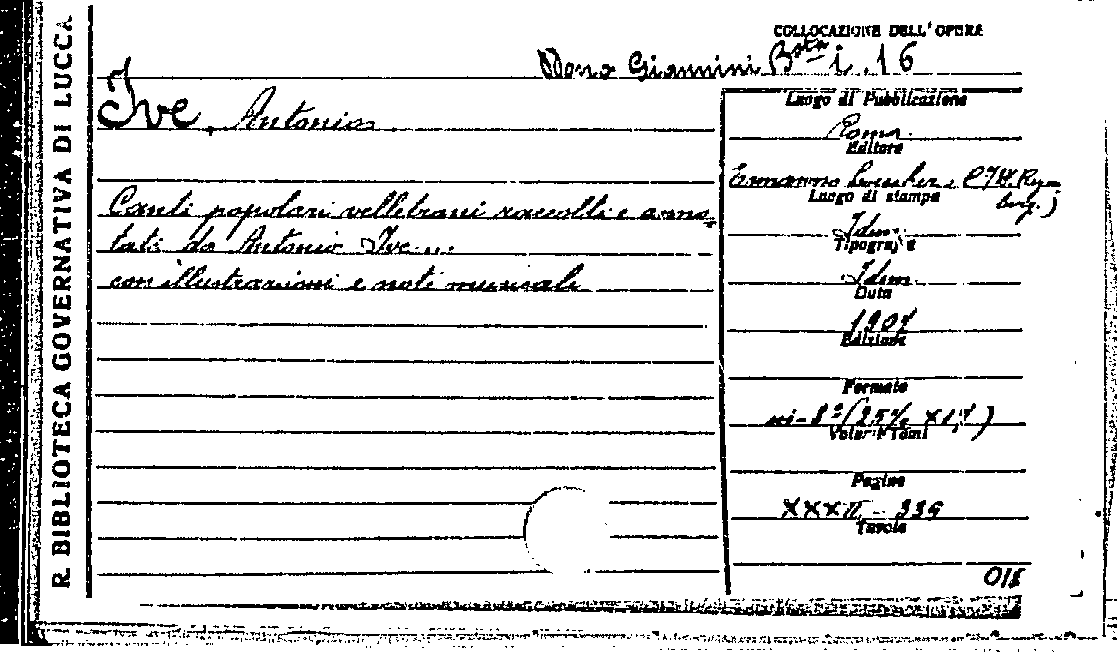 R. BIBLIOTECA GOVERNATIVA DI LUCCA
COLLOCAZIONE DELL'OPERA
Dono Giannini Bsta i. 16
Ive, Antonio
Canti popolari velletrani raccolti e anno-
tati da Antonio Ive...
con illustrazioni e note musicali
Luogo di Pubblicazione
Roma
Editore
Ermanno Loescher e
Luogo di stampa
Idem
Tipografia
Idem
Data
1907
Edizione
Formato
in-8°
Volumi o Tomi
Pagine
XXXII - 339
Tavole